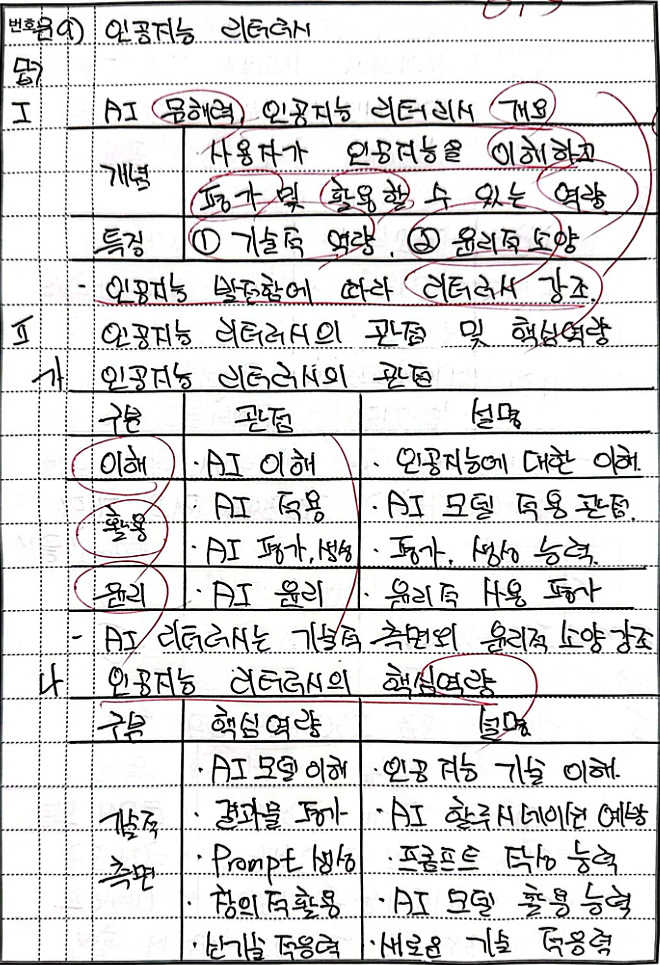 번호 문9) 인공지능 리터러시
답)
I AI 문해력, 인공지능 리터러시 개요
개념 사용자가 인공지능을 이해하고
평가 및 활용할 수 있는 역량
특징 ① 기술적 역량, ② 윤리적 소양
- 인공지능 발전함에 따라 리터러시 강조.
II 인공지능 리터러시의 관점 및 핵심역량
가 인공지능 리터러시의 관점
구분 관점 설명
이해 · AI 이해 · 인공지능에 대한 이해.
활용 AI 적용 · AI 모델 적용 관점.
· AI 평가, 생성 · 평가, 생성 능력.
윤리 · AI 윤리 · 윤리적 사용 평가
- AI 리터러시는 기술적 측면외 윤리적 소양 강조
나 인공지능 리터러시의 핵심역량
구분 핵심역량 설명
기술적 측면 · AI 모델 이해 · 인공지능 기술 이해.
· 결과물 평가 · AI 할루시네이션 예방
· Prompt 생성 · 프롬프트 작성 능력
· 창의적 활용 · AI 모델 활용 능력
· 신기술 적응력 · 새로운 기술 적응력